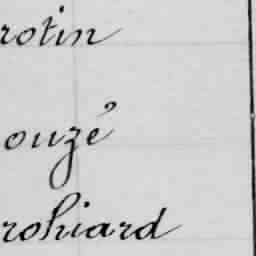 rotin
ouzé
rohiard